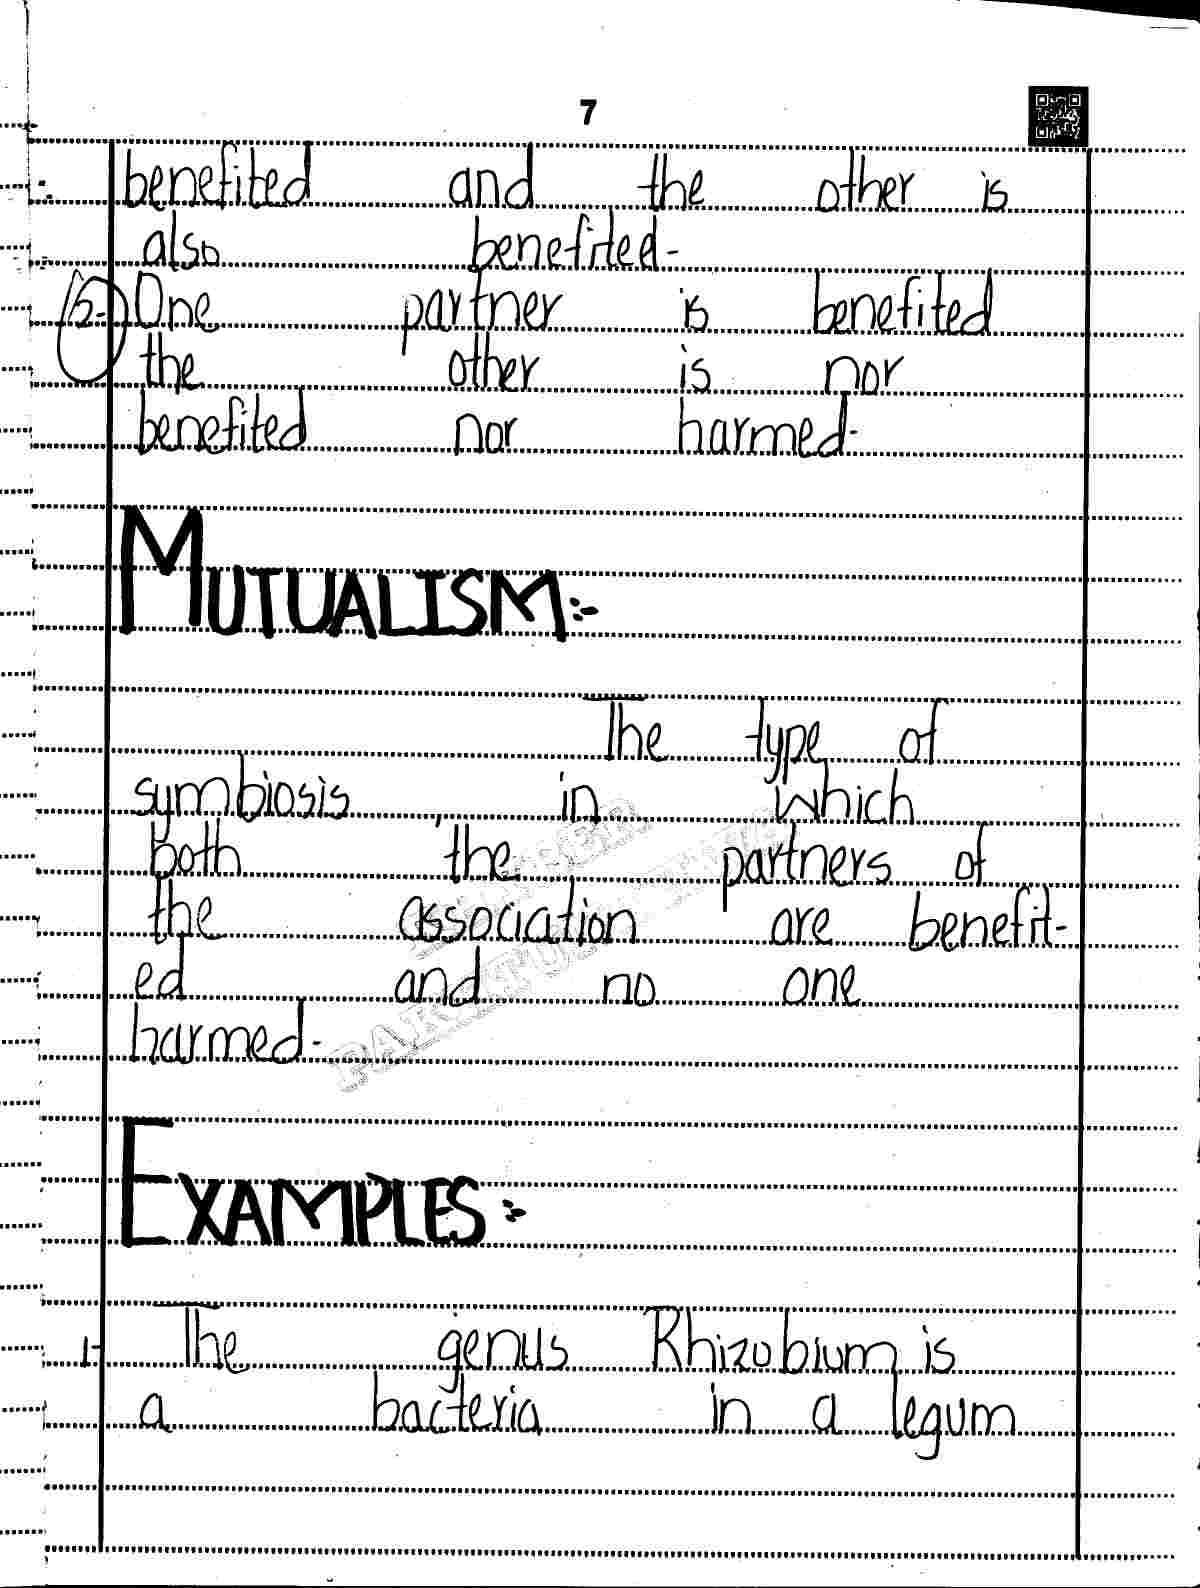 7
benefited and the other is
also benefited.
2- One partner is benefited
the other is nor
benefited nor harmed.
MUTUALISM:-
The type of
symbiosis in which
both the partners of
the association are benefit-
ed and no one
harmed.
EXAMPLES:-
1- The genus Rhizobium is
a bacteria in a legum